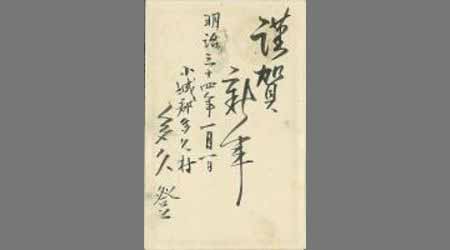 謹賀
新年
明治三十四年一月一日
小城郡多久村
多久 登